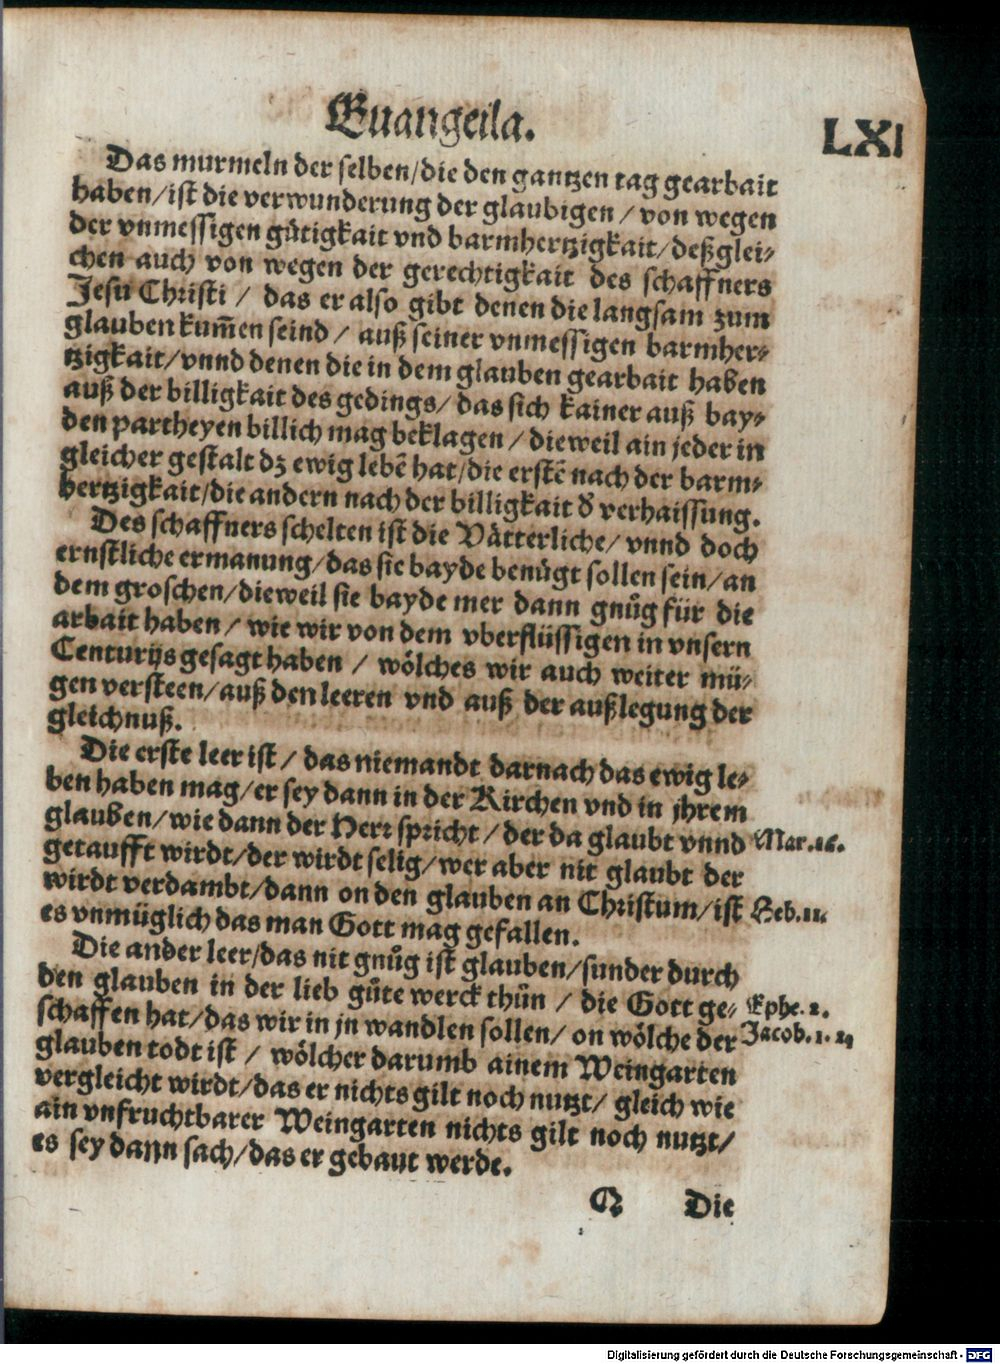 Euangelia.
LXI
Das murmeln der selben/die den gantzen tag gearbait
haben/ist die verwunderung der glaubigen/von wegen
der vnmessigen gůtigkait vnd barmhertzigkait/deßglei⸗
chen auch von wegen der gerechtigkait des schaffners
Jesu Christi/ das er also gibt denen die langsam zum
glauben kum̃en seind/ auß seiner vnmessigen barmher⸗
tzigkait/vnnd denen die in dem glauben gearbait haben
auß der billigkait des gedings/das sich kainer auß bay⸗
den partheyen billich mag beklagen/dieweil ain jeder in
gleicher gestalt dz ewig lebẽ hat/die erstẽ nach der barm⸗
hertzigkait/die andern nach der billigkait ď verhaissung.
Des schaffners schelten ist die Vätterliche/ vnnd doch
ernstliche ermanung/das sie bayde benůgt sollen sein/an
dem groschen/dieweil sie bayde mer dann gnůg für die
arbait haben/ wie wir von dem vberflüssigen in vnsern
Centurijs gesagt haben / wölches wir auch weiter mü⸗
gen versteen/auß den leeren vnd auß der außlegung der
gleichnuß.
Die erste leer ist/ das niemandt darnach das ewig le⸗
ben haben mag/er sey dann in der Kirchen vnd in jhrem
glauben/wie dann der Herr spricht/der da glaubt vnnd
Mar.16.
getaufft wirdt/der wirdt selig/wer aber nit glaubt der
wirdt verdambt/dann on den glauben an Christum/ist
Heb.11.
es vnmüglich das man Gott mag gefallen.
Die ander leer/das nit gnůg ist glauben/sunder durch
den glauben in der lieb gůte werck thůn / die Gott ge⸗
Ephe.2.
schaffen hat/das wir in jn wandlen sollen/ on wölche der
Jacob.1.2.
glauben todt ist / wölcher darumb ainem Weingarten
vergleicht wirdt/das er nichts gilt noch nutzt/ gleich wie
ain vnfruchtbarer Weingarten nichts gilt noch nutzt/
es sey dann sach/das er gebaut werde.
Q Die
Digitalisierung gefördert durch die Deutsche Forschungsgemeinschaft - DFG